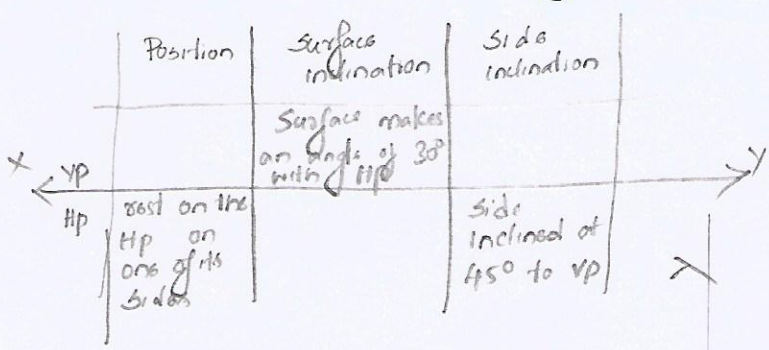 Position
Surface
inclination
Side
inclination
Surface makes
an angle of 30°
with Hp
X
Y
VP
Hp
rest on the
Hp on
one of its
Sides
Side
inclined at
45° to VP